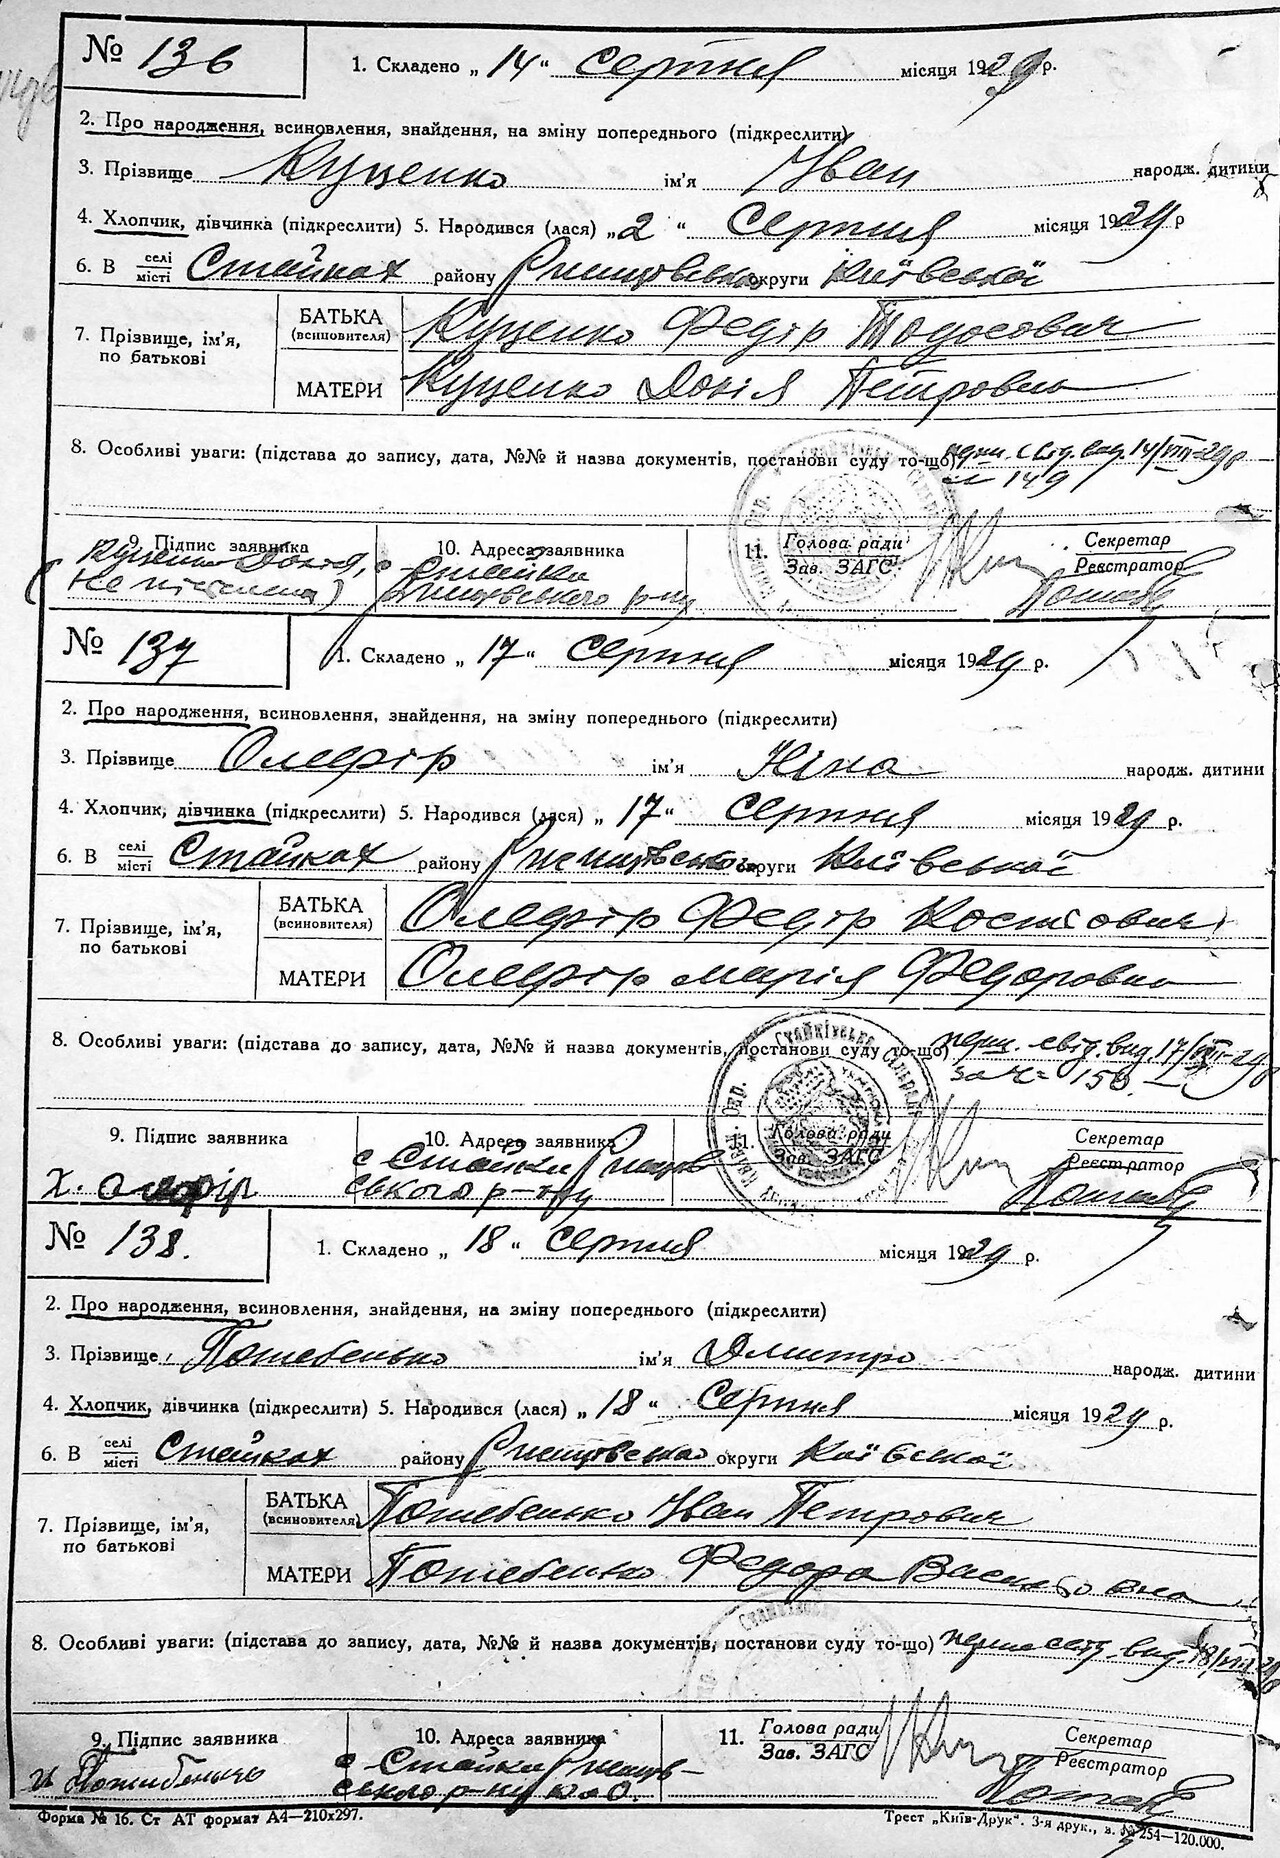 № 136 1. Складено „ 14 “ серпня місяця 1929 р.
2. Про народження, всиновлення, знайдення, на зміну попереднього (підкреслити)
3. Прізвище Куценко ім'я Іван народж. дитини
4. Хлопчик, дівчинка (підкреслити) 5. Народився (лася) „ 2 “ Серпня місяця 1929 р
6. В селі місті Стайках району Ржищівсько округи Київської
7. Прізвище, ім'я, по батькові БАТЬКА (всиновителя) Куценко Федір Тодосович
МАТЕРИ Куценко Докія Петровна
8. Особливі уваги: (підстава до запису, дата, №№ й назва документів, постанови суду то-що) перш. свід. вид. 14/VIII-29р
149
9. Підпис заявника 10. Адреса заявника 11. Голова ради Секретар
Зав. ЗАГС Реєстратор
Куценко Докія, с Стайки
(не писмена) Ржищівського р-ну
№ 137 1. Складено „ 17 “ серпня місяця 1929 р.
2. Про народження, всиновлення, знайдення, на зміну попереднього (підкреслити)
3. Прізвище Олефір ім'я Ніна народж. дитини
4. Хлопчик, дівчинка (підкреслити) 5. Народився (лася) „ 17 “ серпня місяця 1929 р.
6. В селі місті Стайках району Ржищівсько округи Київської
7. Прізвище, ім'я, по батькові БАТЬКА (всиновителя) Олефір Федір Костьович
МАТЕРИ Олефір Марія Федоровна
8. Особливі уваги: (підстава до запису, дата, №№ й назва документів, постанови суду то-що) перш. свід. вид. 17/VIII-29р
за ч= 150
9. Підпис заявника 10. Адреса заявника 11. Голова ради Секретар
Зав. ЗАГС Реєстратор
Х. Олефір с Стайки Ржищів
ського р-ну
№ 138. 1. Складено „ 18 “ серпня місяця 1929 р.
2. Про народження, всиновлення, знайдення, на зміну попереднього (підкреслити)
3. Прізвище Потебенько ім'я Дмитро народж. дитини
4. Хлопчик, дівчинка (підкреслити) 5. Народився (лася) „ 18 “ Серпня місяця 1929 р.
6. В селі місті Стайках району Ржищівсько округи Київської
7. Прізвище, ім'я, по батькові БАТЬКА (всиновителя) Потебенько Іван Петрович
МАТЕРИ Потебенько Федора Василовна
8. Особливі уваги: (підстава до запису, дата, №№ й назва документів, постанови суду то-що) перше свід. вид. 18/VIII-29р
9. Підпис заявника 10. Адреса заявника 11. Голова ради Секретар
Зав. ЗАГС Реєстратор
И Потибенько с Стайки Ржищів-
ського р-ну К.О.
Форма № 16. Ст АТ формат А4—210х297. Трест „Київ-Друк“. 3-я друк., з. № 254—120.000.